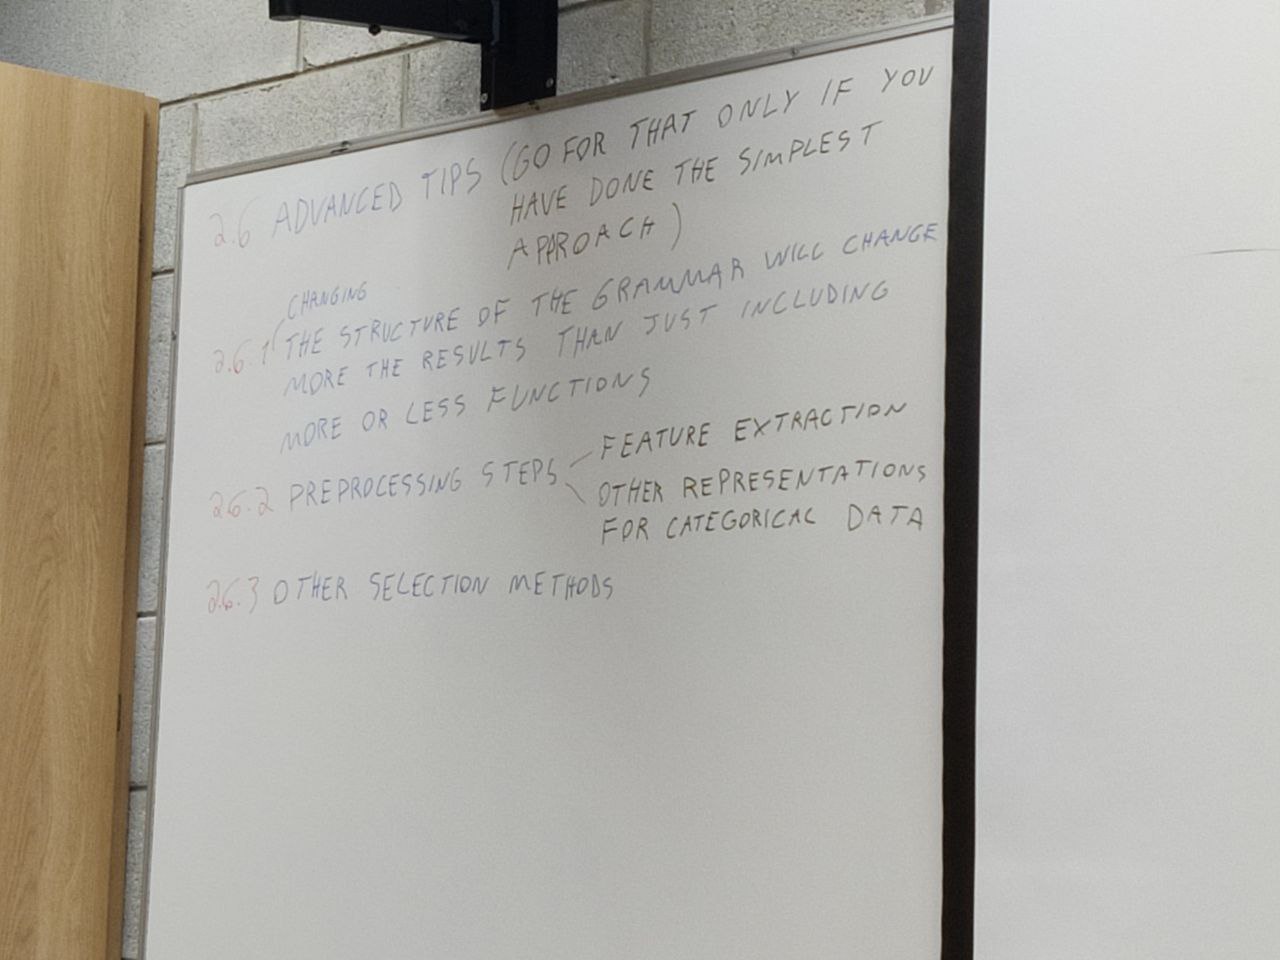 2.6 ADVANCED TIPS (GO FOR THAT ONLY IF YOU
HAVE DONE THE SIMPLEST
APPROACH)
CHANGING
2.6.1 THE STRUCTURE OF THE GRAMMAR WILL CHANGE
MORE THE RESULTS THAN JUST INCLUDING
MORE OR LESS FUNCTIONS
2.6.2 PREPROCESSING STEPS FEATURE EXTRACTION
OTHER REPRESENTATIONS
FOR CATEGORICAL DATA
2.6.3 OTHER SELECTION METHODS